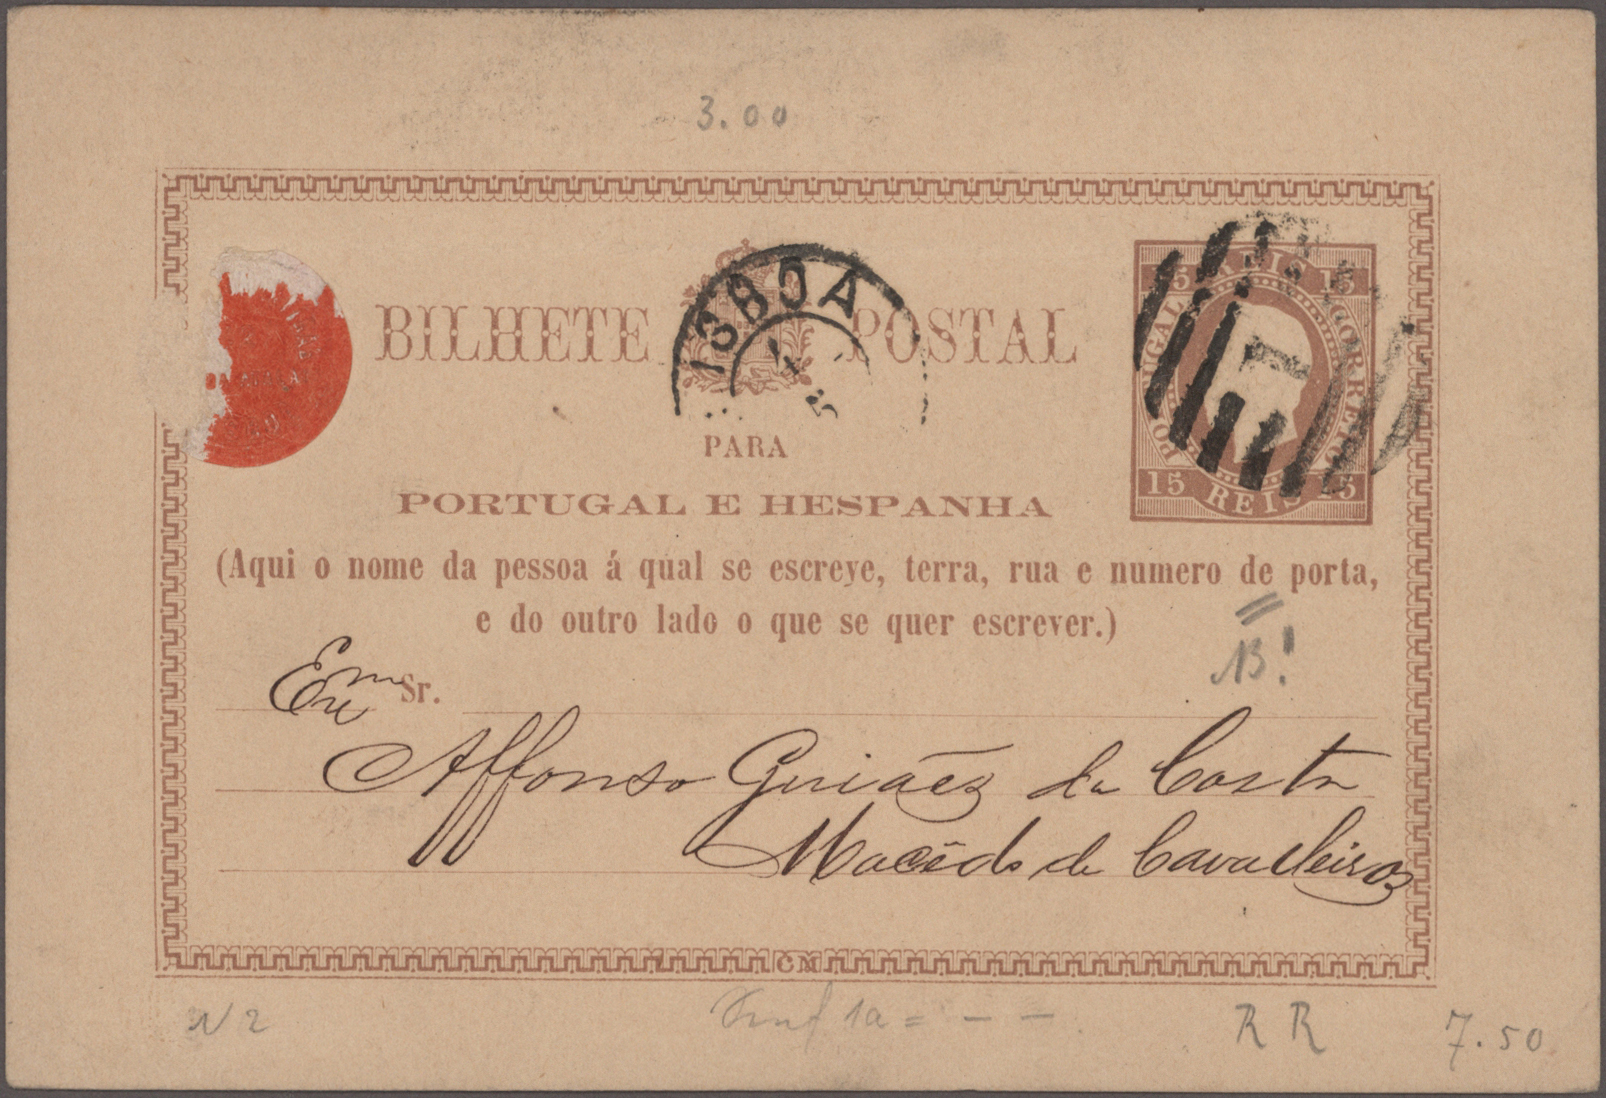 3.00
15 REIS 15
PORTUGAL
CORREIO
15 REIS 15
1
ISBOA
BILHETE POSTAL
PARA
PORTUGAL E HESPANHA
(Aqui o nome da pessoa á qual se escreye, terra, rua e numero de porta,
e do outro lado o que se quer escrever.)
13!
Sr.
Affonso Guiães da Costa
Macêdo de Cavalleiros
CM
N2
1a = - -
RR
7.50